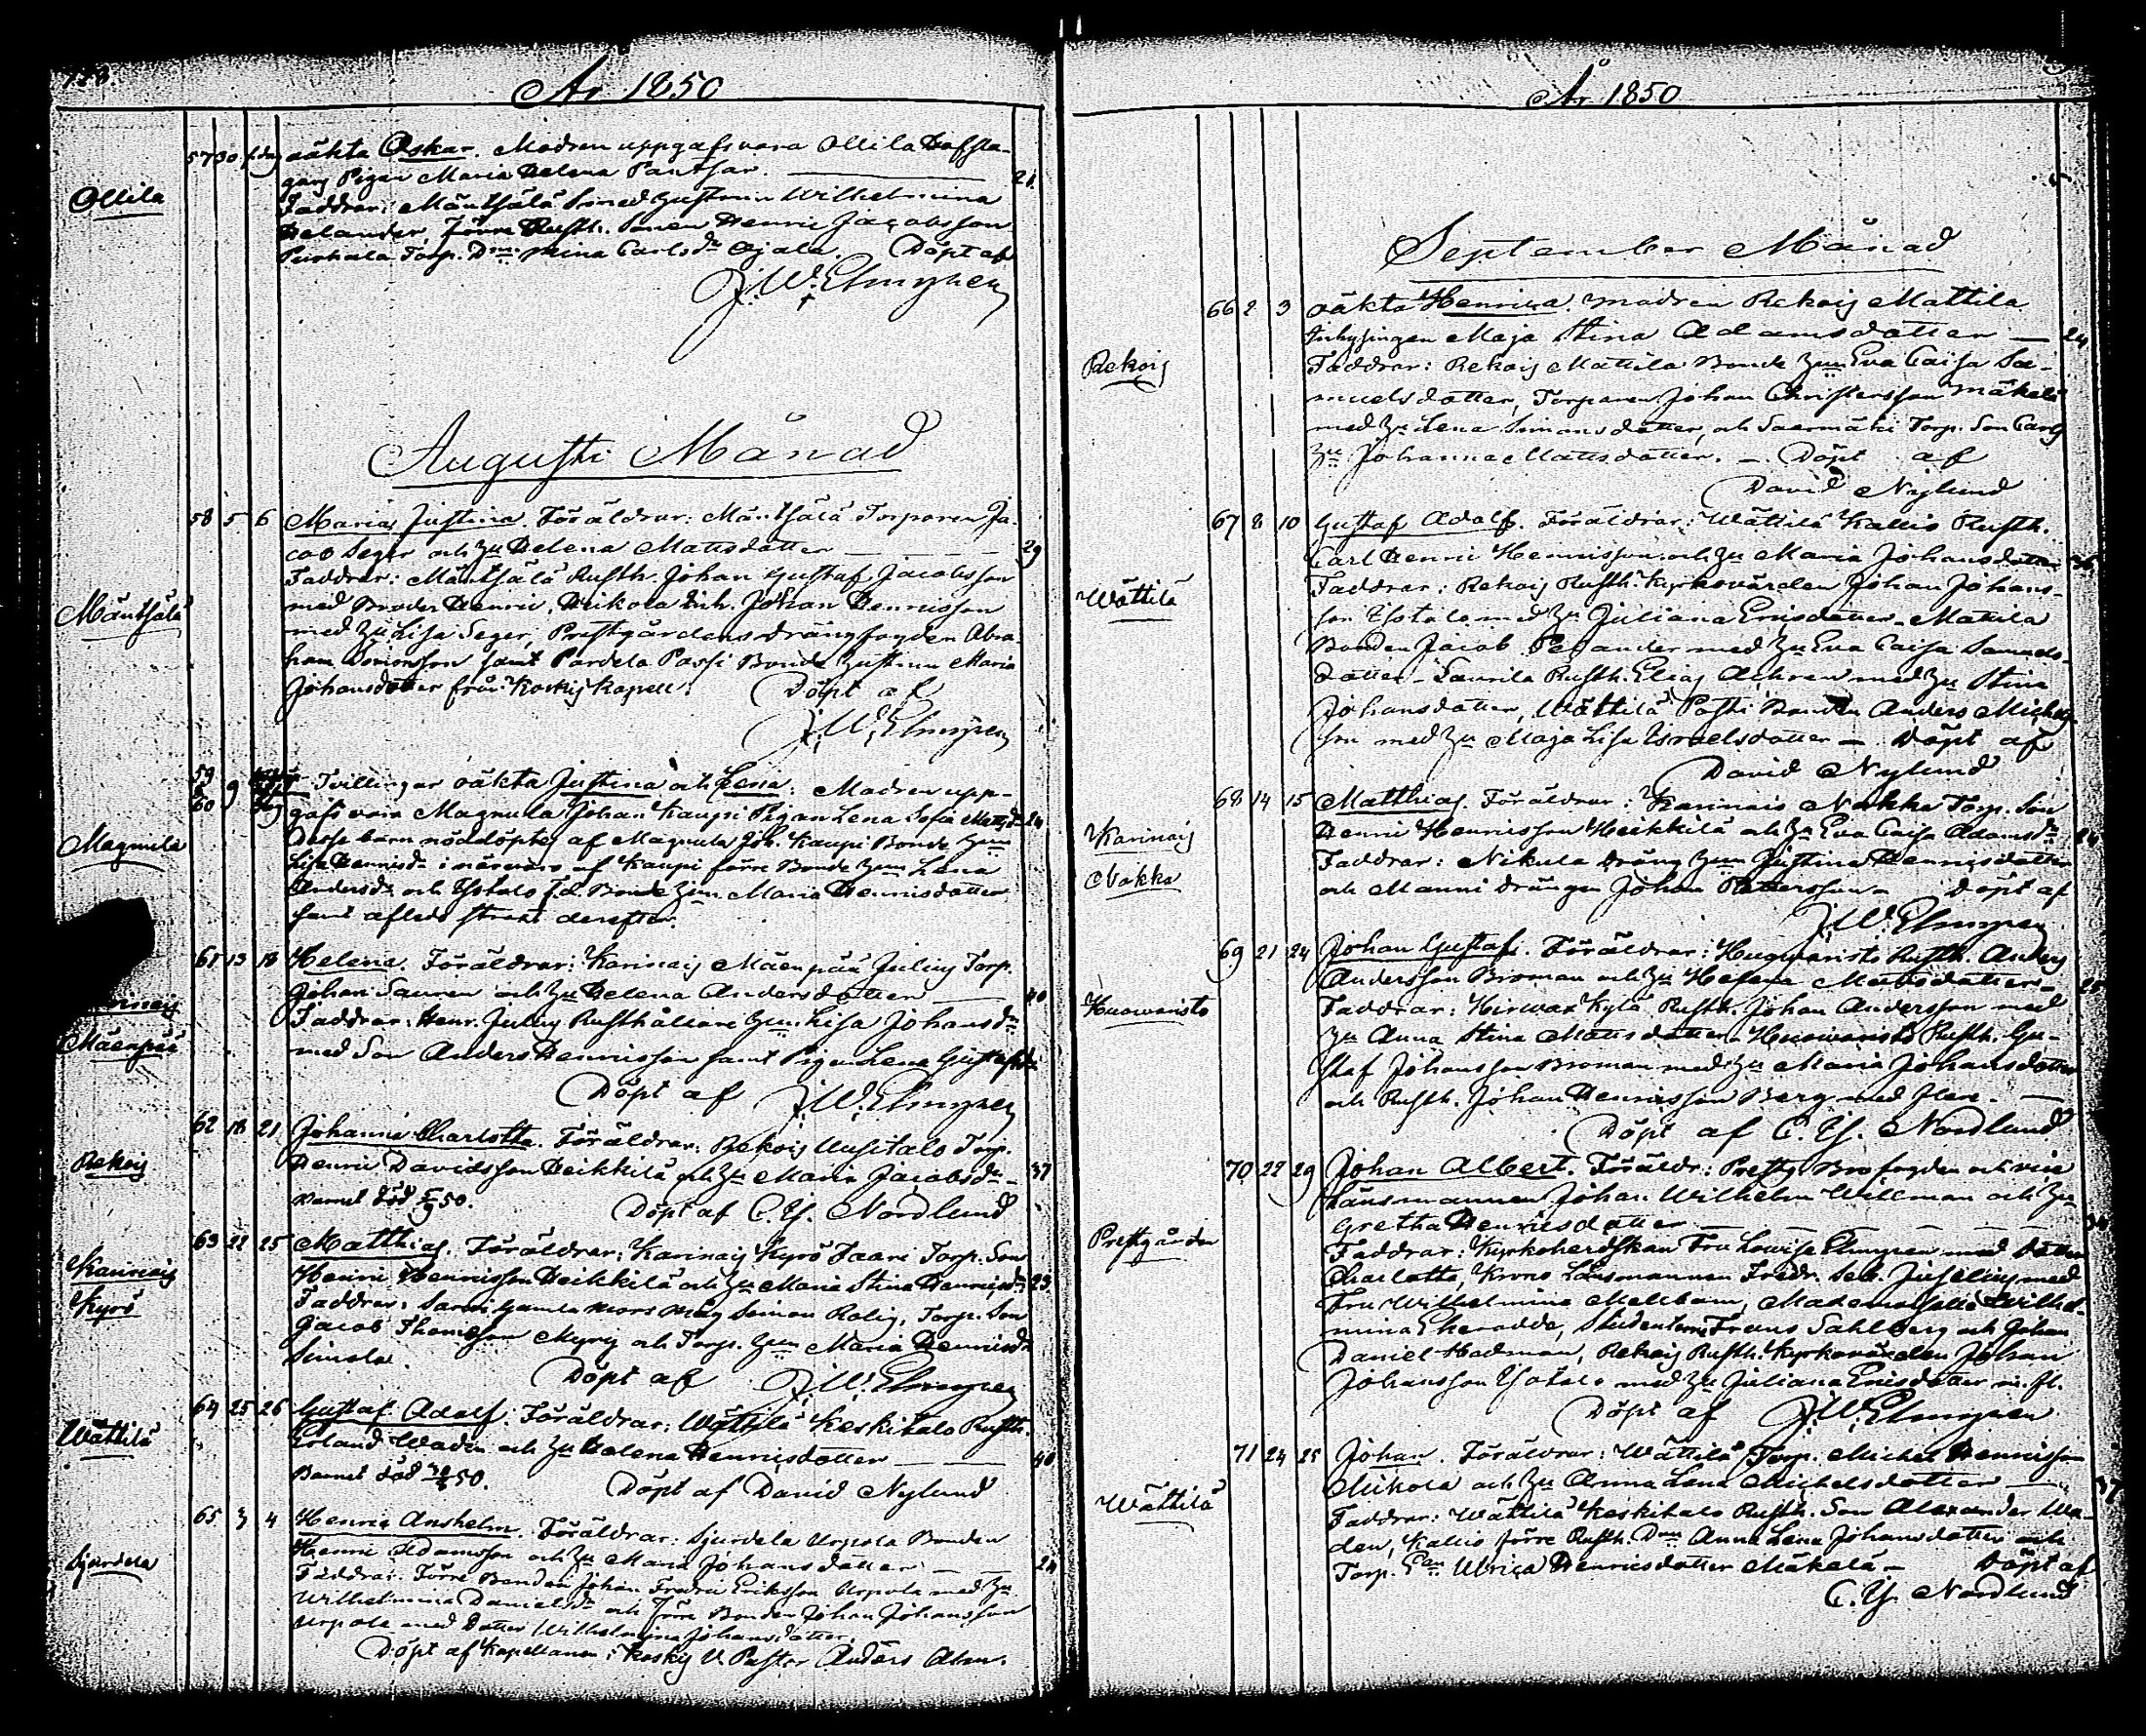 År 1850
Ollila
57 30 s. dag oäkta Oskar. Modren uppgafs vara Ollila
Pigan Maria Helena Panthar. 21
Faddrar: Mäntsälä hustrun Wilhelmina
Helander, Förre Rusth. Sonen Henric Jacobsson
Torp. Mina Carlsdr Ojala. Döpt af
J. W. Elmgren
Augusti Månad
Mäntsälä
58 5 6 Maria Justina. Föräldrar: Mäntsälä Torparen Ja-
cob Seger och hu Helena Mattsdotter 29
Faddrar: Mäntsälä Rusth. Johan Gustaf Jacobsson
med Broder Henric, Mikola Inh. Johan Henricsson
med hu Lisa Seger, Prestgårdens drängfogden Abra-
ham Simonsson samt Pardela Passi Bonde hustrun Maria
Johansdotter från Koskis Kapell. Döpt af
J. W. Elmgren
Magnula
59 & 60 9 Tvillingar oäkta Justina och Lena. Modren upp-
gafs vara Magnula Johan Kaupi Pigan Lena Sofia Mattsdr 24
Desse barn nöddöptes af Magnula Joh. Kaupi Bonde hun
Lisa Henricsdr i närvaro af Kaupi förre Bonde hun Lena
Andersdr och Ysitalo f.d. Bonde hun Maria Henricsdotter
samt afledo strax derefter.
Karinais
Mäenpää
61 13 18 Helena. Föräldrar: Karinais Mäenpää Juling Torp.
Johan Sauren och hu Helena Andersdotter 40
Faddrar: Henr. Juling Rusthållare hun Lisa Johansdr
med Son Anders Henricsson samt Pigan Lena Gustafsdr
Döpt af J. W. Elmgren
Rekois
62 18 21 Johanna Charlotta. Föräldrar: Rekois Uusitalo Torp.
Henric Davidsson Heikkilä och hu Maria Jacobsdr 37
Barnet död 50. Döpt af C. Y. Nordlund
Karinais
Kyrö
63 22 25 Matthias. Föräldrar: Karinais Kyrö Jaari Torp. Son
Henric Henricsson Heikkilä och hu Maria Stina Henricsdr 23
Faddrar: Gamla mors måg Simon Rolig, Torp. Son
Jacob Thomasson Myry och Torp. hun Maria Henricsdr
Simola.
Döpt af J. W. Elmgren
Wättilä
64 25 26 Gustaf Adolf. Föräldrar: Wättilä Keskitalo Rusth.
Erland Waden och hu Helena Henricsdotter 40
Barnet död 50. Döpt af David Nylund
Sjurdela
65 3 4 Henric Anshelm. Föräldrar: Sjurdela Urpola Bonden
Henric Adamsson och hu Maria Johansdotter 24
Faddrar: Förre Bonden Johan Fredric Eriksson Urpola med hu
Wilhelmina Danielsdr och förre Bonden Johan Johansson
Urpola med dotter Wilhelmina Johansdotter.
Döpt af Kapellanen i Koskis V. Pastor Anders Alan.
År 1850
September Månad
Rekois
66 2 3 oäkta Henrica. Modren Rekois Mattila
Inhysingen Maja Stina Adamsdotter 24
Faddrar: Rekois Mattila Bonde hun Eva Caisa Sa-
muelsdotter, Torparen Johan Christersson Mäkelä
med hu Lena Simonsdotter, och Saermäki Torp. Son Carls
hu Johanna Mattsdotter. Döpt af
David Nylund
Wättilä
67 8 10 Gustaf Adolf. Föräldrar: Wättilä Kallis Rusth.
Carl Henric Henricsson och hu Maria Johansdotter 36
Faddrar: Rekois Rusth. Kyrkovärden Johan Johans-
son Ysitalo med hu Juliana Ericsdotter - Mattila
Bonden Jacob Pelander med hu Eva Caisa Samuels-
dotter - Taurila Rusth. Elias Achren med hu Stina
Johansdotter, Wättilä Posti Bonden Anders Michels-
son med hu Maja Lisa Israelsdotter - Döpt af
David Nylund
Karinais
Nokka
68 14 15 Matthias. Föräldrar: Karinais Nokka Torp. Son
Henric Henricsson Heikkilä och hu Eva Caisa Adamsdr 24
Faddrar: Nikula dräng hun Justina Henricsdotter
och Manni drängen Johan Pettersson - Döpt af
J. W. Elmgren
Huowaristo
69 21 24 Johan Gustaf. Föräldrar: Huowaristo Rusth. Anders
Andersson Broman och hu Helena Mattsdotter - 25
Faddrar: Hirwas Kylä Rusth. Johan Andersson med
hu Anna Stina Mattsdotter - Huowaristo Rusth. Gu-
staf Johansson Broman med hu Maria Johansdotter
och Rusth. Johan Henricsson Berg med flere.
Döpt af C. Y. Nordlund
Prestgården
70 22 29 Johan Albert. Föräldr: Prestg. Brofogden och vice
Länsmannen Johan Wilhelm Willman och hu
Gretha Henricsdotter 34
Faddrar: Kyrkoherdskan Fru Lovisa Elmgren med dotter
Charlotta, Krono Länsmannen Fredr. Seb. Juselius med
Fru Wilhelmina Mellbom, Mademoiselle Wilhel-
mina Ekerodde, Studenterne Frans Sahlberg och Johan
Daniel Hadman, Rekois Rusth. Kyrkovärden Johan
Johansson Ysitalo med hu Juliana Ericsdotter m. fl.
Döpt af J. W. Elmgren
Wättilä
71 24 25 Johan. Föräldrar: Wättilä Torp. Michel Henricsson
Mikola och hu Anna Lena Michelsdotter 37
Faddrar: Wättilä Keskitalo Rusth. Son Alexander Wa-
den, Kallis förre Rusth. Dr Anna Lena Johansdotter och
Torp. Ulrica Henricsdotter Mäkelä - Döpt af
C. Y. Nordlund